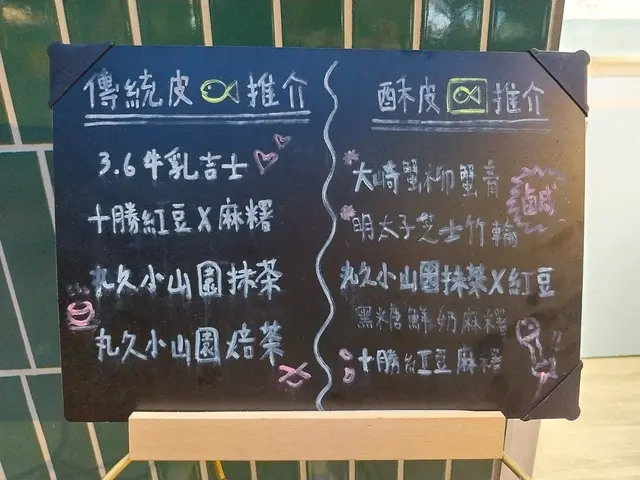 傳統皮 推介
3.6牛乳吉士
十勝紅豆X麻糬
丸久小山園抹茶
丸久小山園焙茶
酥皮 推介
大崎蟹柳蟹膏
鹹
明太子芝士竹輪
丸久小山園抹茶X紅豆
黑糖鮮奶麻糬
十勝紅豆麻糬